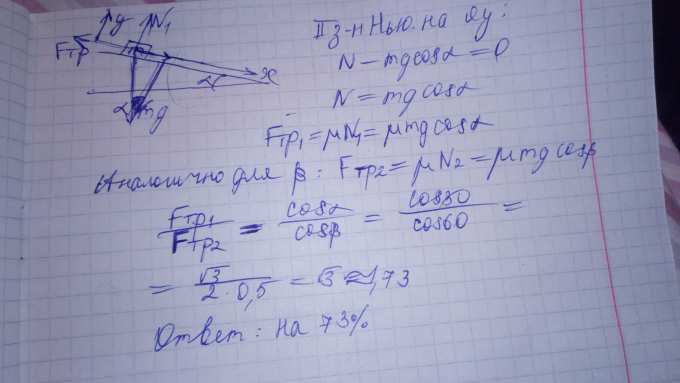 y N₁ IIз-н Нью. на Oy:
Fтр
N - mgcosα = 0
α x
α mg
N = mgcosα
Fтр₁ = μN₁ = μmgcosα
Аналогично для β: Fтр₂ = μN₂ = μmgcosβ
Fтр₁/Fтр₂ = cosα/cosβ = cos30/cos60 =
= √3/2·0,5 = √3 ≈ 1,73
Ответ: на 73%